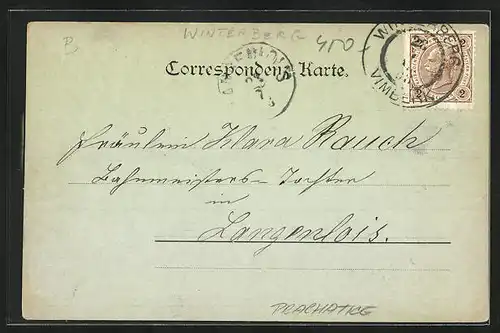 WINTERBERG
450-
B
WINTERBERG
VIMBERK
2
2
LANGENLOIS
Correspondenz-Karte.
Fräulein Klara Rauch
Bahnmeisters-Tochter
in
Langenlois.
PRACHATICE